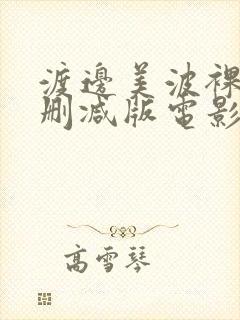 渡邊美波裸
删减版電影
高雪琴